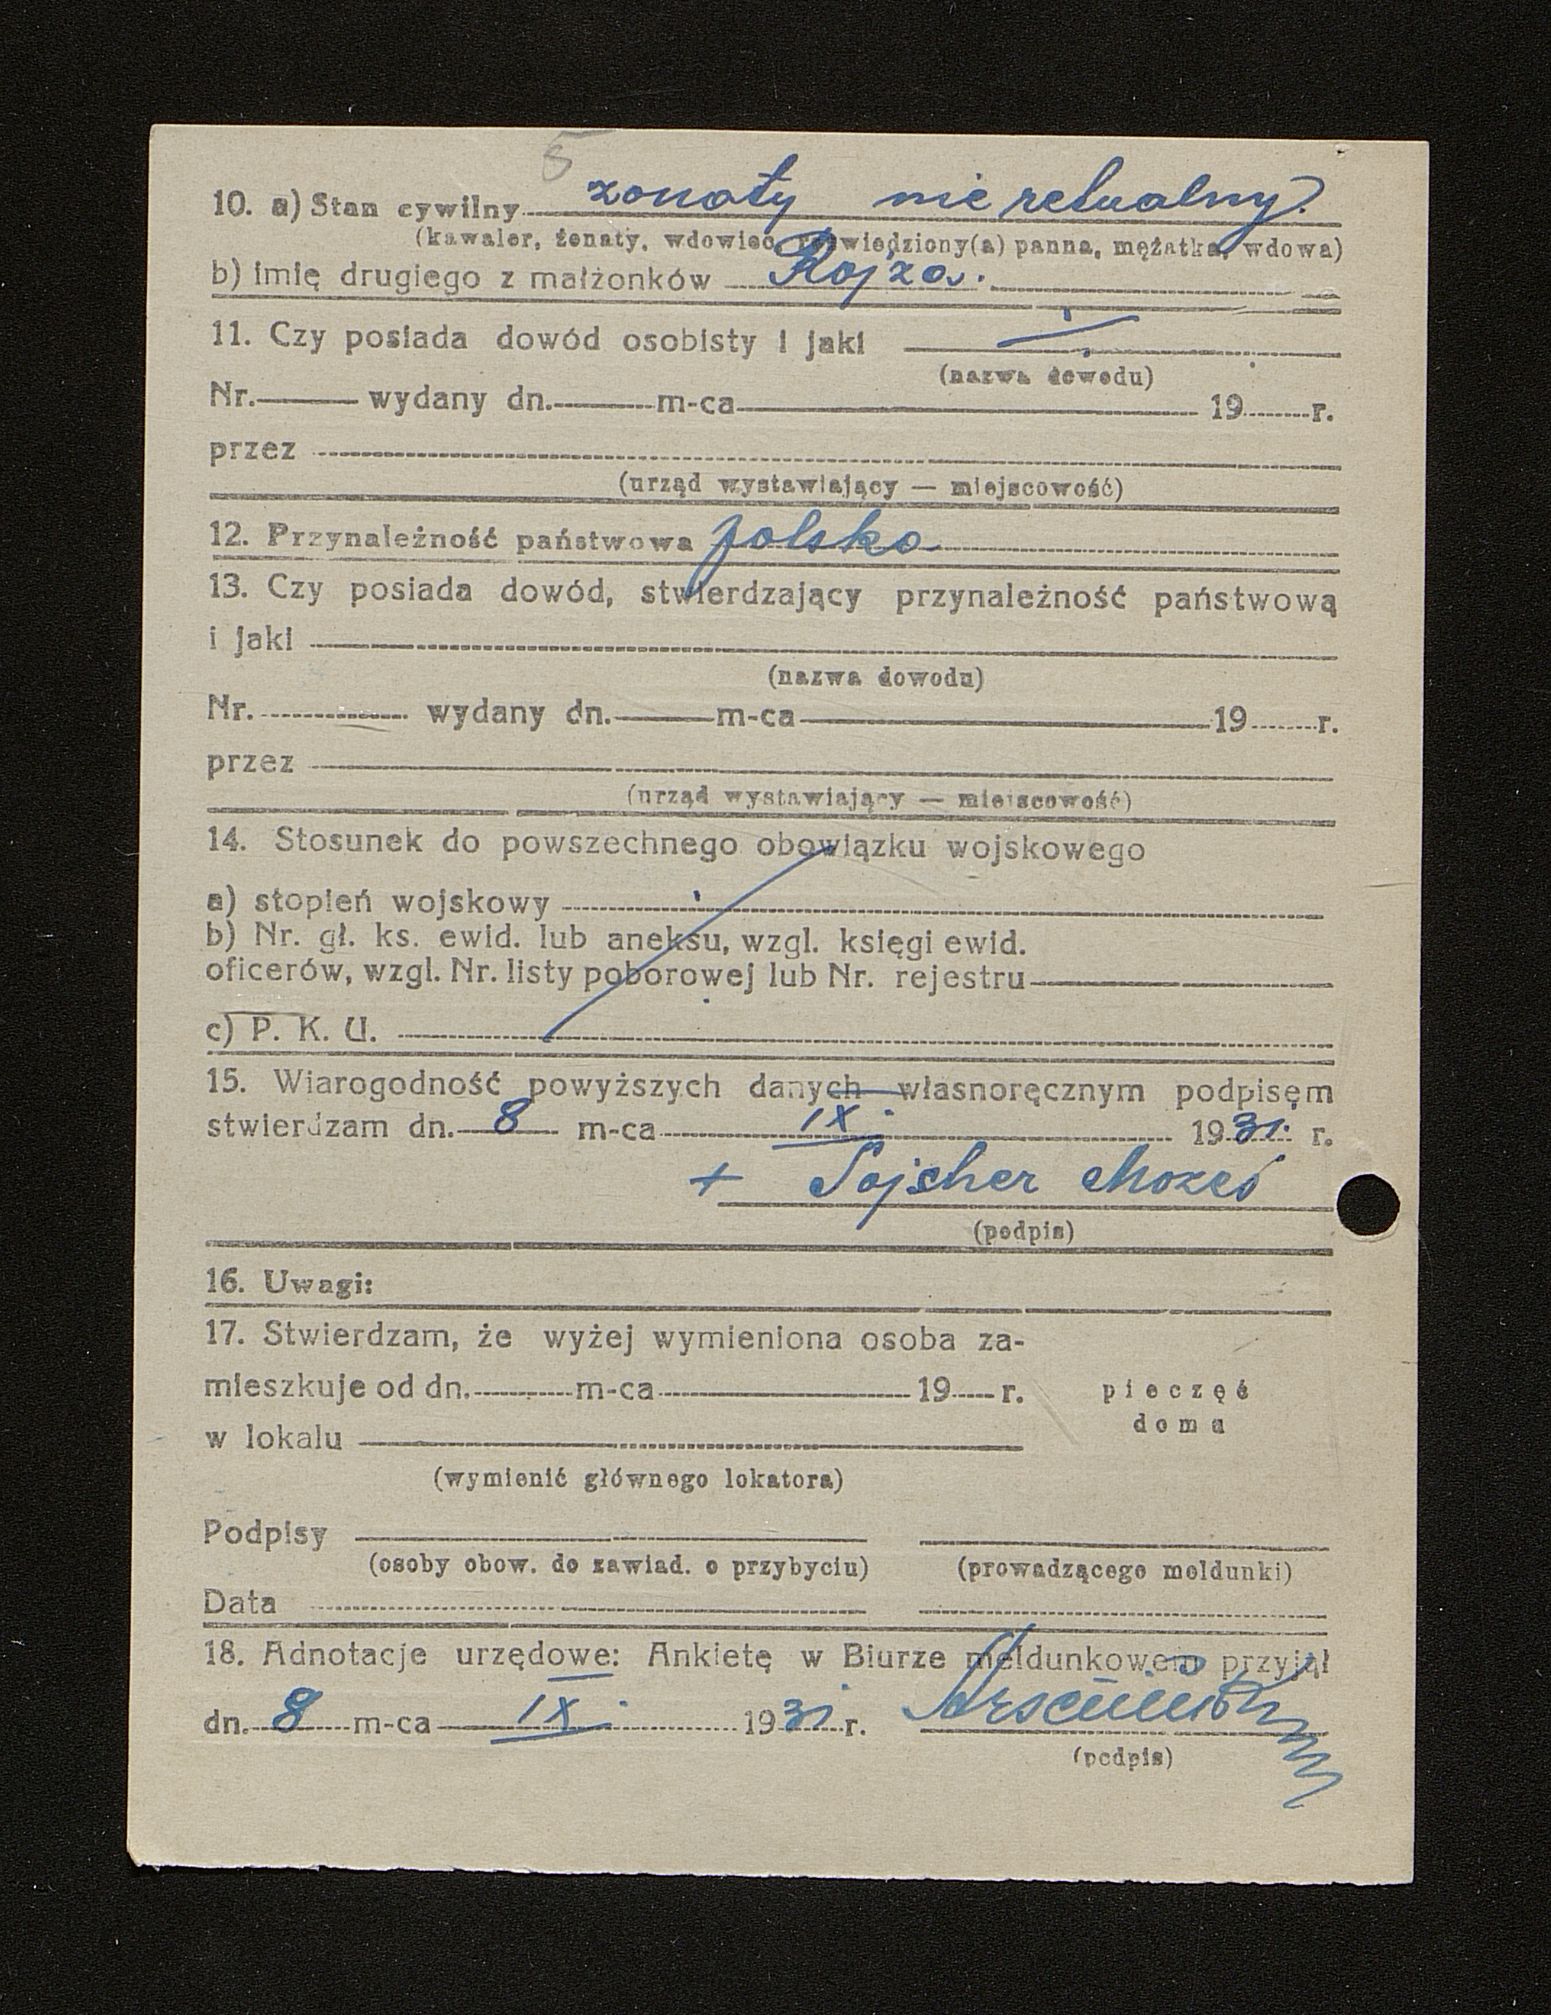 5
10. a) Stan cywilny żonaty nie retualny.
(kawaler, żonaty, wdowiec, rozwiedziony(a) panna, mężatka, wdowa)
b) imię drugiego z małżonków Rojza.
11. Czy posiada dowód osobisty i jaki
(nazwa dowodu)
Nr. wydany dn. m-ca 19 r.
przez
(urząd wystawiający — miejscowość)
12. Przynależność państwowa polska
13. Czy posiada dowód, stwierdzający przynależność państwową
i jaki
(nazwa dowodu)
Nr. wydany dn. m-ca 19 r.
przez
(urząd wystawiający — miejscowość)
14. Stosunek do powszechnego obowiązku wojskowego
a) stopień wojskowy
b) Nr. gł. ks. ewid. lub aneksu, wzgl. księgi ewid.
oficerów, wzgl. Nr. listy poborowej lub Nr. rejestru
c) P. K. U.
15. Wiarogodność powyższych danych własnoręcznym podpisem
stwierdzam dn. 8 m-ca IX 1931. r.
+ Sojcher Mozes
(podpis)
16. Uwagi:
17. Stwierdzam, że wyżej wymieniona osoba za-
mieszkuje od dn. m-ca 19 r.
pieczęć
domu
w lokalu
(wymienić głównego lokatora)
Podpisy
(osoby obow. do zawiad. o przybyciu) (prowadzącego meldunki)
Data
18. Adnotacje urzędowe: Ankietę w Biurze meldunkowem przyjął
dn. 8 m-ca IX 1931 r.
(podpis)